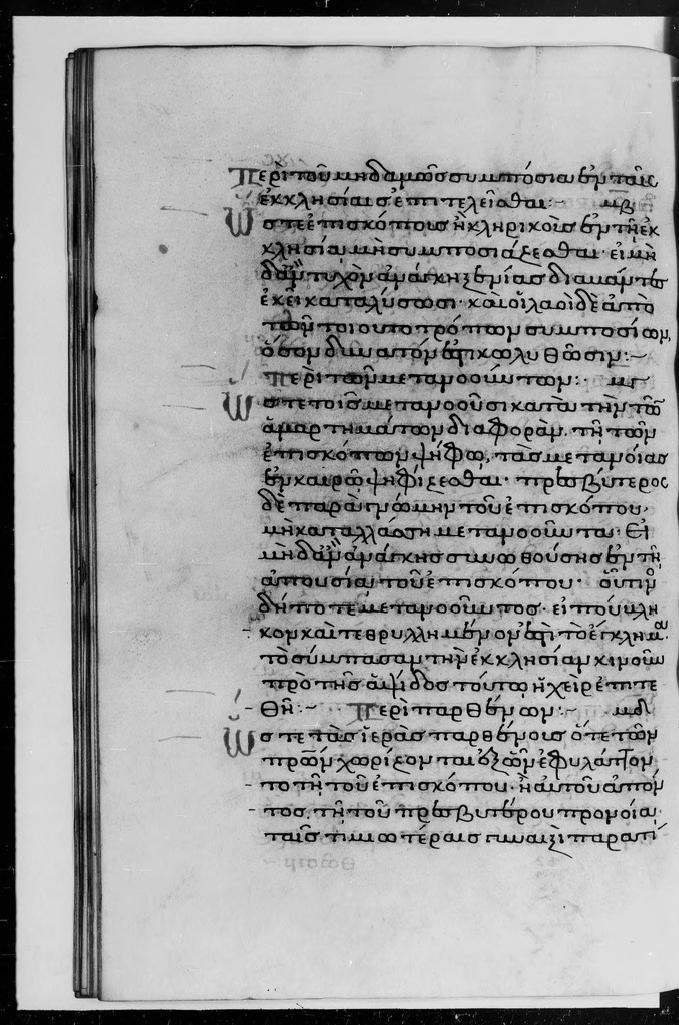 Περὶ τοῦ μηδαμῶς συμπόσια ἐν ταῖς
ἐκκλησίαις ἐπιτελεῖσθαι:- μβ
Ὥστε ἐπισκόπους ἢ κληρικοὺς ἐν τῇ ἐκ
κλησίᾳ μὴ συμποσιάζεσθαι· εἰ μὴ
δὰν τυχὸν ἀνάγκη ξενίας διαβαίνοντες
ἐκεῖ καταλύσωσι· καὶ οἱ λαοὶ δὲ ἀπὸ
τῶν τοιουτοτρόπων συμποσίων,
ὅσον δυνατόν ἐστι κωλυθῶσιν:~
Περὶ τῶν μετανοούντων:· μγ
Ὥστε τοῖς μετανοοῦσι κατὰ τὴν τῶν
ἁμαρτημάτων διαφορὰν. τῇ τῶν
ἐπισκόπων ψήφῳ, τὰς μετανοίας
ἐν καιρῷ ψηφίζεσθαι· πρεσβύτερος
δὲ παρὰ γνώμην τοῦ ἐπισκόπου,
μὴ καταλλάσσῃ μετανοοῦντα· Εἰ
μὴ δὰν ἀνάγκης συνωθούσης ἐν τῇ
ἀπουσίᾳ τοῦ ἐπισκόπου· οὗτιν
δήποτε μετανοοῦντος· εἴπου κλη
κον καὶ τεθρυλλημένον ἐστὶ τὸ ἔγκλημα
τὸ σύμπασαν τὴν ἐκκλησίαν κινοῦν
πρὸ τῆς ἁψίδος τούτῳ ἡ χεὶρ ἐπιτε
θῇ:~ Περὶ παρθένων:~ μδ
Ὥστε τὰς ἱερὰς παρθένους ὅτε τῶν
πρῶν χωρίζονται ἐξ ὧν ἐφυλάττον
το τῇ τοῦ ἐπισκόπου· ἢ αὐτοῦ ἀπόν
τος, τῇ τοῦ πρεσβυτέρου προνοίᾳ
ταῖς τιμιωτέραις γυναιξὶ παρατί